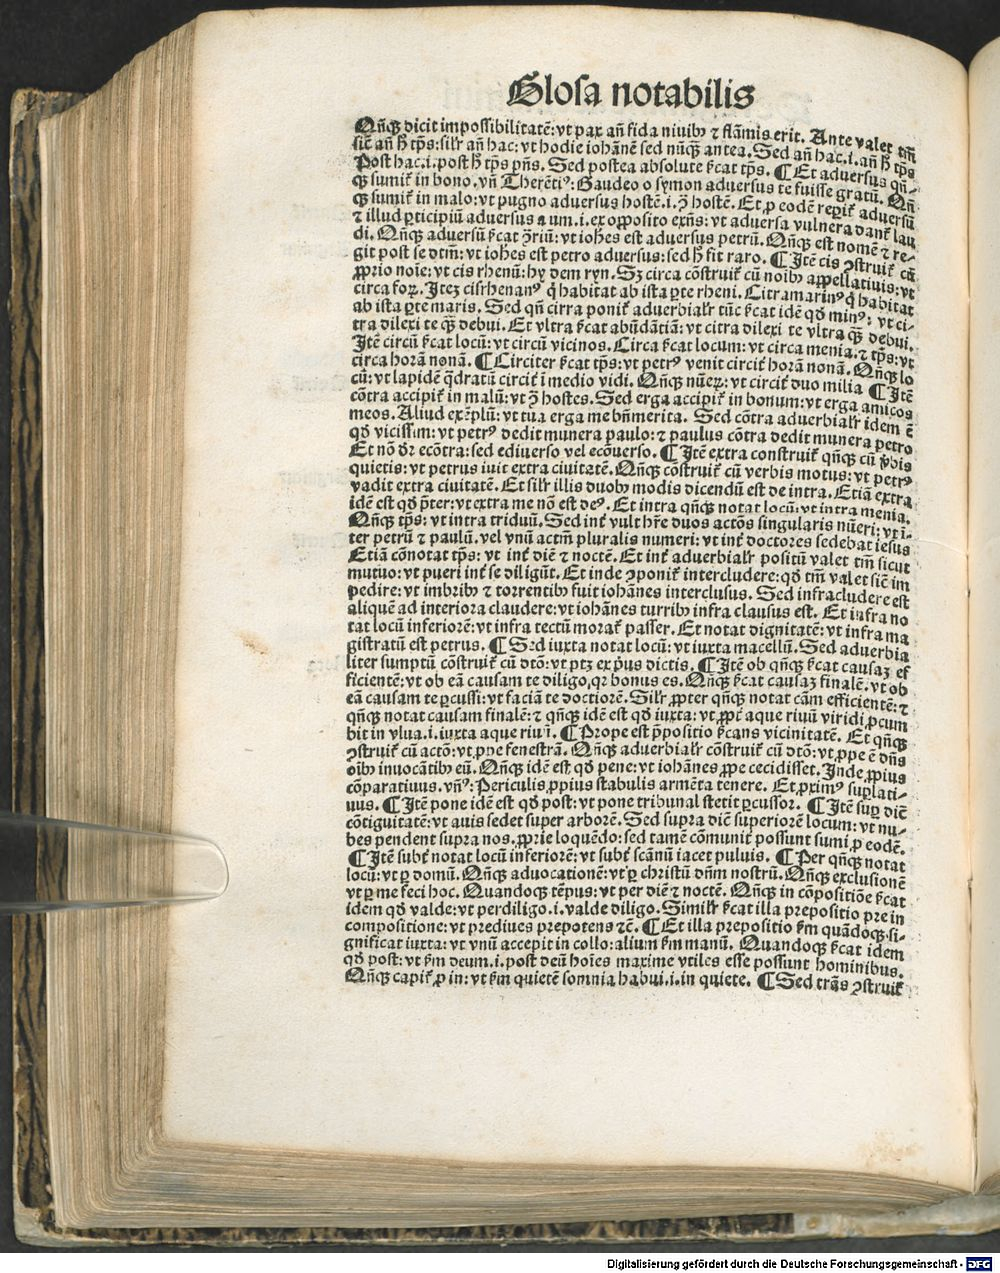 Glosa notabilis
Qñqꝫ dicit impossibilitatē: vt pax añ fida niuibꝫ ⁊ flāmis erit. Ante valet tm̄
sic̄ añ h̄ tp̄s: silr añ hac: vt hodie iohānē sed nūqꝫ antea. Sed añ hac .i. añ h̄ tp̄s
Post hac .i. post h̄ tp̄s pn̄s. Sed postea absolute ẜcat tp̄s. ¶ Et aduersus qñ-
qꝫ sumit᷑ in bono. vñ Therēti⁹: Gaudeo o symon adversus te fuisse gratū. Qñ
qꝫ sumit᷑ in malo: vt pugno adversus hostē .i. ↄ̄ hostē. Et ꝓ eodē reꝑit᷑ adversū
⁊ illud ꝑticipiū adversus a um .i. ex opposito exn̄s: vt adversa vulnera dant᷑ lau
di. Qñqꝫ adversū ẜcat ↄ̄riū: vt iohēs est adversus petrū. Qñqꝫ est nomē ⁊ re-
git post se dtm̄: vt iohēs est petro adversus: sed h̄ fit raro. ¶ Itē cis ↄstruit᷑ cū
ꝓprio noīe: vt cis rhenū: hy dem ryn. Sꝫ circa cōstruit᷑ cū noībꝫ appellatiuis: vt
circa forꝝ. Itez cisrhenan⁹ q̇ habitat ab ista ꝑte rheni. Citramarin⁹ q̇ habitat
ab ista ꝑte maris. Sed qñ citra ponit᷑ adverbialr tūc ẜcat idē qđ min⁹: vt ci-
tra dilexi te qꝫ debui. Et vltra ẜcat abūdātiā: vt citra dilexi te vltra qꝫ debui.
Itē circū ẜcat locū: vt circū vicinos. Circa ẜcat locum: vt circa menia. ⁊ tp̄s: vt
circa horā nonā. ¶ Circiter ẜcat tp̄s: vt petr⁹ venit circit᷑ horā nonā. Qñqꝫ lo
cū: vt lapidē q̇dratū circit᷑ ī medio vidi. Qñqꝫ nūeꝝ: vt circit᷑ duo milia ¶ Itē
cōtra accipit᷑ in malū: vt ↄ̄ hostes. Sed erga accipit᷑ in bonum: vt erga amicos
meos. Aliud exēplū: vt tua erga me bn̄merita. Sed cōtra adverbialr idem ē
qđ vicissim: vt petr⁹ dedit munera paulo: ⁊ paulus cōtra dedit munera petro
Et nō dr̄ ecōtra: sed ediverso vel ecōverso. ¶ Itē extra construit᷑ qñqꝫ cū v̄bis
quietis: vt petrus iuit extra ciuitatē. Qñqꝫ cōstruit᷑ cū verbis motus: vt petr⁹
vadit extra ciuitatē. Et silr illis duobꝫ modis dicendū est de intra. Etiā extra
idē est qđ p̄ter: vt extra me nō est de⁹. Et intra qñqꝫ notat locū: vt intra menia.
Qñqꝫ tp̄s: vt intra triduū. Sed int᷑ vult hr̄e duos actōs singularis nūeri: vt ī-
ter petrū ⁊ paulū. vel vnū actm̄ pluralis numeri: vt int᷑ doctores sedebat iesus
Etiā cōnotat tp̄s: vt int᷑ diē ⁊ noctē. Et int᷑ adverbialr positū valet tm̄ sicut
mutuo: vt pueri int᷑ se diligūt. Et inde ↄponit᷑ intercludere: qđ tm̄ valet sic̄ im
pedire: vt imbribꝫ ⁊ torrentibꝫ fuit iohānes interclusus. Sed infracludere est
aliquē ad interiora claudere: vt iohānes turribꝫ infra clausus est. Et infra no
tat locū inferiorē: vt infra tectū morat᷑ passer. Et notat dignitatē: vt infra ma
gistratū est petrus. ¶ Sed iuxta notat locū: vt iuxta macellū. Sed adverbia
liter sumptū cōstruit᷑ cū dtō: vt ptꝫ ex p̄us dictis. ¶ Itē ob qñqꝫ ẜcat causaꝫ ef
ficientē: vt ob eā causam te diligo, qꝛ bonus es. Qñqꝫ ẜcat causaꝫ finalē. vt ob
eā causam te ꝑcussi: vt faciā te doctiorē. Silr ꝓpter qñqꝫ notat cām efficientē: ⁊
qñqꝫ notat causam finalē: ⁊ qñqꝫ idē est qđ iuxta: vt ꝓpt᷑ aque riuū viridi ꝓcum
bit in vlua .i. iuxta aque riuū. ¶ Prope est p̄positio ẜcans vicinitatē. Et qñqꝫ
ↄstruit᷑ cū actō: vt ꝓpe fenestrā. Qñqꝫ adverbialr cōstruit᷑ cū dtō: vt ꝓpe ē dn̄s
oībꝫ invocātibꝫ eū. Qñqꝫ idē est qđ pene: vt iohānes ꝓpe cecidisset. Inde ꝓpius
cōparatiuus. vñ⁹: Periculis ꝓpius stabulis armēta tenere. Et ꝓxim⁹ suꝑlati-
uus. ¶ Itē pone idē est qđ post: vt pone tribunal stetit ꝑcussor. ¶ Itē suꝑ diē
cōtiguitatē: vt auis sedet super arborē. Sed supra diē superiorē locum: vt nu-
bes pendent supra nos. ꝓprie loquēdo: sed tamē cōmunit᷑ possunt sumi ꝓ eodē.
¶ Itē subt᷑ notat locū inferiorē: vt subt᷑ scānū iacet puluis. ¶ Per qñqꝫ notat
locū: vt ꝑ domū. Qñqꝫ aduocationē: vt ꝑ christū dn̄m nostrū. Qñqꝫ exclusionē
vt ꝑ me feci hoc. Quandoqꝫ tēpus: vt per diē ⁊ noctē. Qñqꝫ in cōpositiōe ẜcat
idem qđ valde: vt perdiligo .i. valde diligo. Similr ẜcat illa prepositio pre in
compositione: vt prediues prepotens ⁊c̄. ¶ Et illa prepositio ẜm quādoqꝫ si-
gnificat iuxta: vt vnū accepit in collo: alium ẜm manū. Quandoqꝫ ẜcat idem
qđ post: vt ẜm deum .i. post deū hoīes maxime vtiles esse possunt hominibus.
Qñqꝫ capit᷑ ꝓ in: vt ẜm quietē somnia habui .i. in quiete. ¶ Sed trās ↄstruit᷑
Digitalisierung gefördert durch die Deutsche Forschungsgemeinschaft - DFG